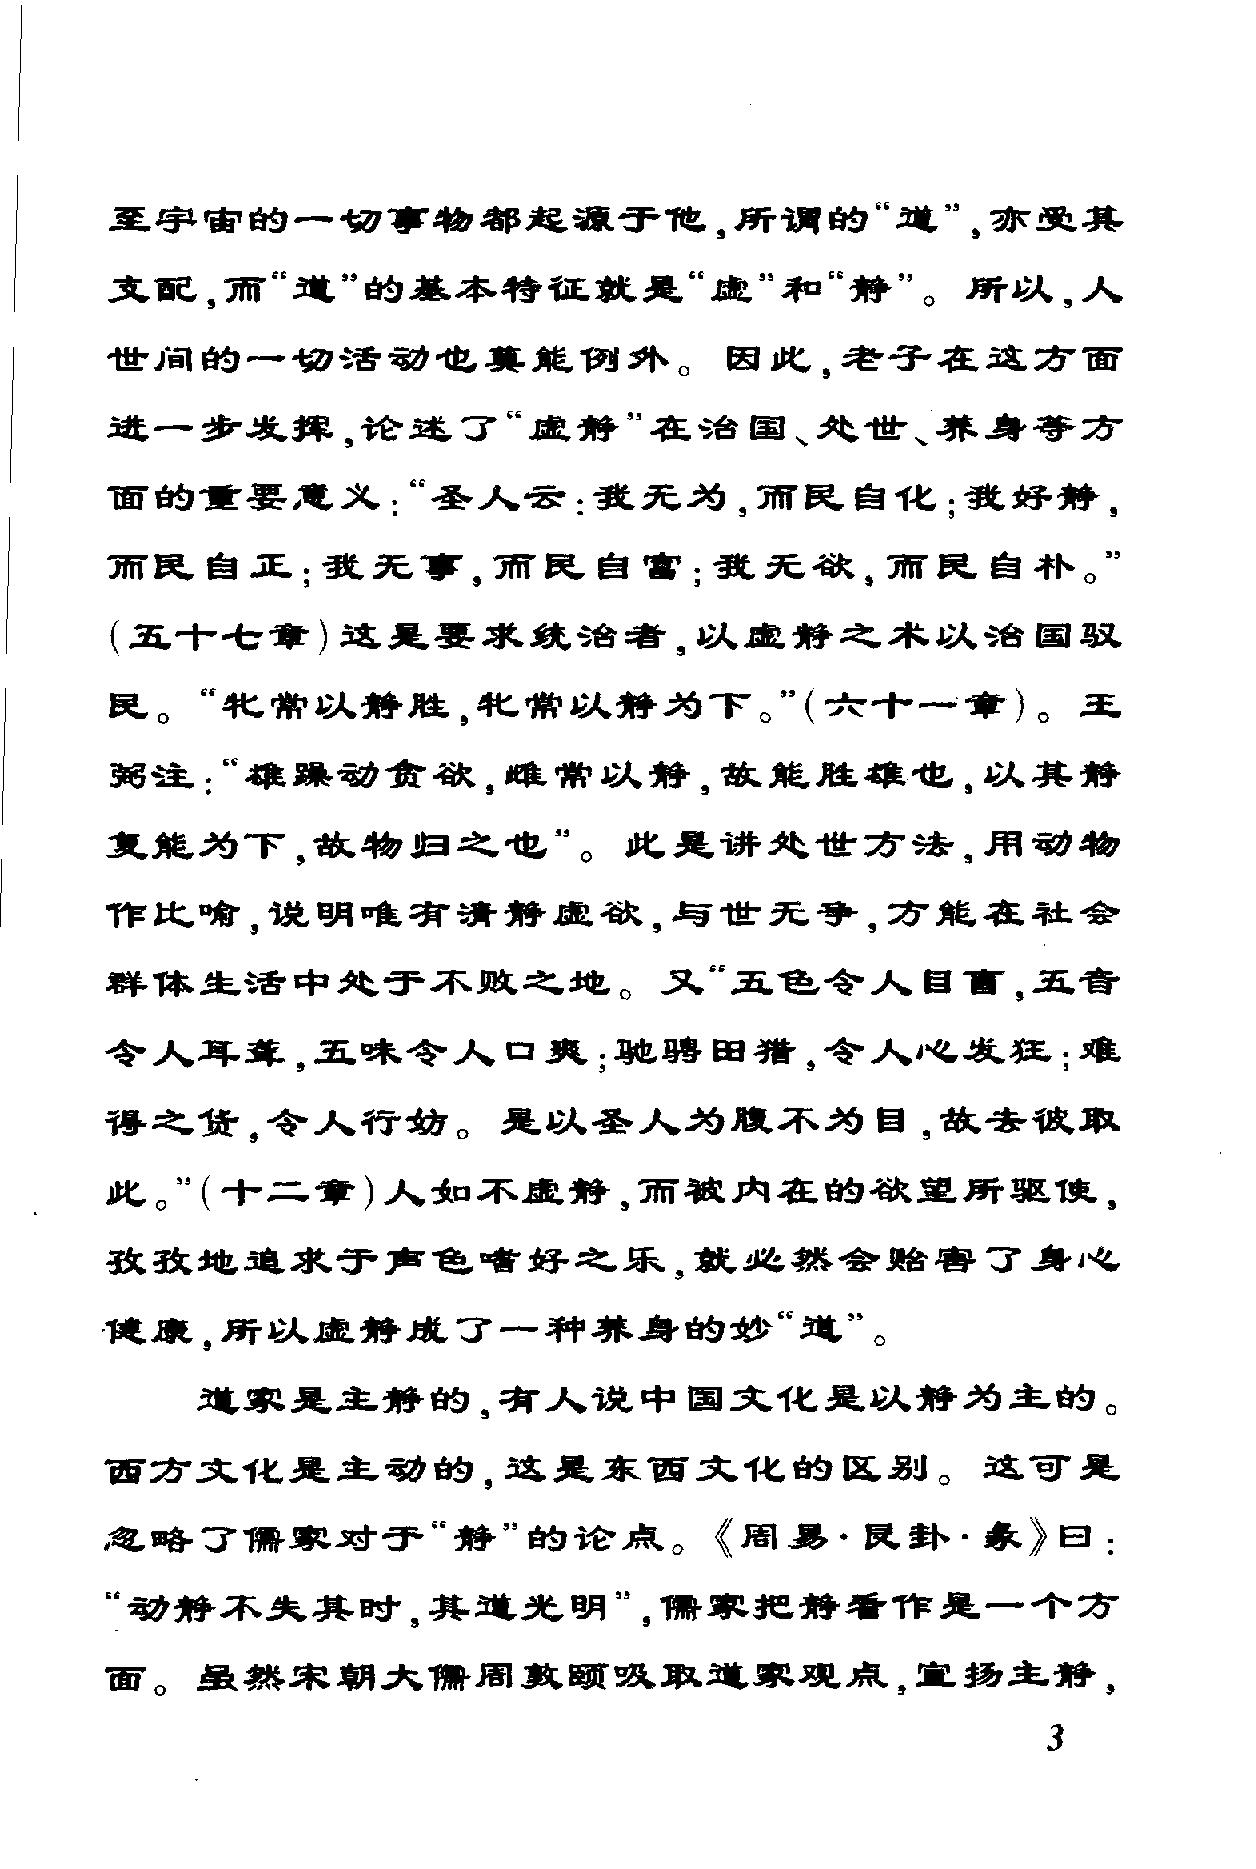 至宇宙的一切事物都起源于他，所谓的“道”，亦受其
支配，而“道”的基本特征就是“虚”和“静”。所以，人
世间的一切活动也莫能例外。因此，老子在这方面
进一步发挥，论述了“虚静”在治国、处世、养身等方
面的重要意义：“圣人云：我无为，而民自化；我好静，
而民自正；我无事，而民自富；我无欲，而民自朴。”
（五十七章）这是要求统治者，以虚静之术以治国驭
民。“牝常以静胜，牝常以静为下。”（六十一章）。王
弼注：“雄躁动贪欲，雌常以静，故能胜雄也，以其静
复能为下，故物归之也”。此是讲处世方法，用动物
作比喻，说明唯有清静虚欲，与世无争，方能在社会
群体生活中处于不败之地。又“五色令人目盲，五音
令人耳聋，五味令人口爽；驰骋田猎，令人心发狂；难
得之货，令人行妨。是以圣人为腹不为目，故去彼取
此。”（十二章）人如不虚静，而被内在的欲望所驱使，
孜孜地追求于声色嗜好之乐，就必然会贻害了身心
健康，所以虚静成了一种养身的妙“道”。
道家是主静的，有人说中国文化是以静为主的。
西方文化是主动的，这是东西文化的区别。这可是
忽略了儒家对于“静”的论点。《周易·艮卦·彖》曰：
“动静不失其时，其道光明”，儒家把静看作是一个方
面。虽然宋朝大儒周敦颐吸取道家观点，宣扬主静，
3